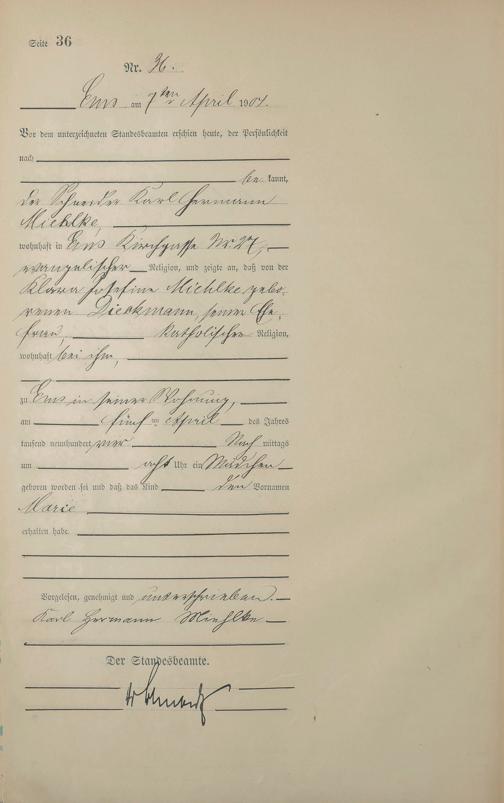 Seite 36
Nr. 36.
Ems am 7ten April 1904.
Vor dem unterzeichneten Standesbeamten erschien heute, der Persönlichkeit
nach
be kannt,
der Schneider Karl Hermann
Miehlke,
wohnhaft in Ems Kirchgasse Nr. 27,
evangelischer Religion, und zeigte an, daß von der
Klara Josefine Miehlke gebo-
renen Dieckmann, seiner Ehe-
frau, katholischer Religion,
wohnhaft bei ihm,
zu Ems in seiner Wohnung,
am fünften April des Jahres
tausend neunhundert vier Nach mittags
um acht Uhr ein Mädchen
geboren worden sei und daß das Kind den Vornamen
Marie
erhalten habe.
Vorgelesen, genehmigt und unterschrieben.
Karl Hermann Miehlke
Der Standesbeamte.